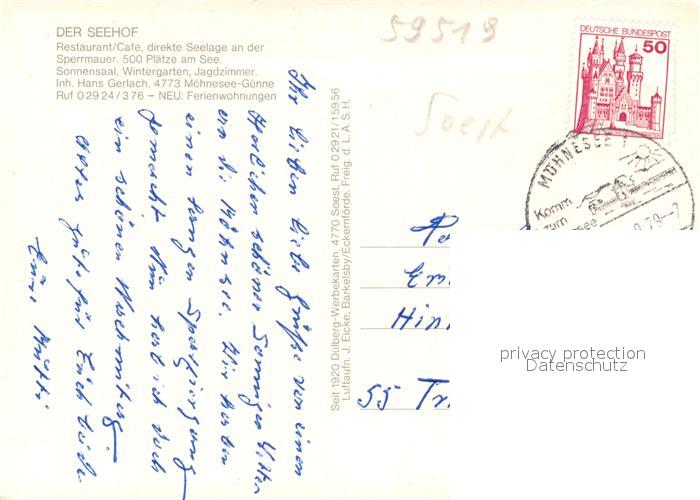 DER SEEHOF
Restaurant/Café, direkte Seelage an der
Sperrmauer. 500 Plätze am See.
Sonnensaal, Wintergarten, Jagdzimmer.
Inh. Hans Gerlach, 4773 Möhnesee-Günne
Ruf 02924/376 – NEU: Ferienwohnungen
59519
Soest
DEUTSCHE BUNDESPOST
50
MÖHNESEE 1
Komm
zum
see
79-7
Ihr Lieben liebe Grüße von einem
herrlichen schönen Sonnigen
an die Möhnsee. Wir haben
einen langen Spaziergang
gemacht. Nun habt ich doch
ein schönen Nachmittag
Alles gute für Euch beide
Eure Mutti
Seit 1920 Dülberg-Werbekarten, 4770 Soest, Ruf 02921/15956
Luftaufn. J. Eicke, Barkelsby/Eckernförde. Freig. d. L. A. S. H.
Hin
55 Tr
privacy protection
Datenschutz